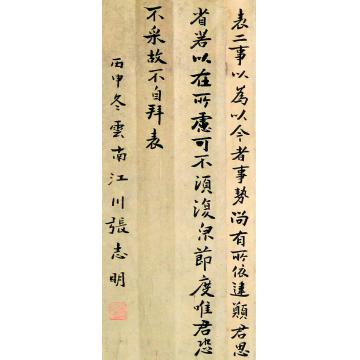 表二事以為以今者事勢尚有所依違願君思
省若以在所慮可不須復稟節度唯君恐
不采故不自拜表
丙申冬雲南江川張志明